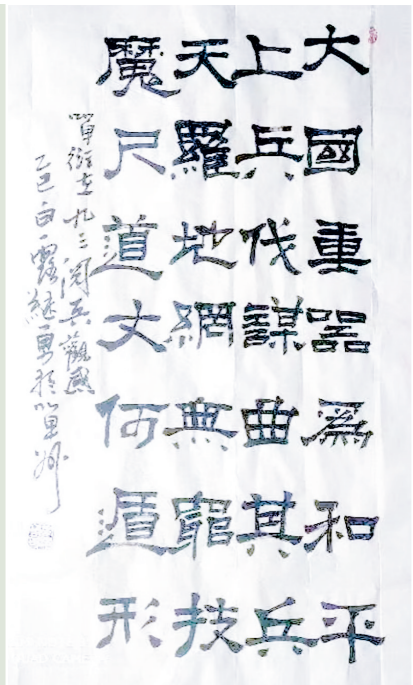 大國重器爲和平
上兵伐謀曲其兵
天羅地網無窮技
魔尺道丈何遁形
九三閱兵觀感
乙巳白露繼勇於